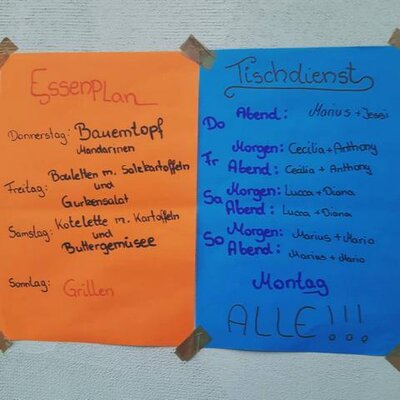 Essenplan
Donnerstag: Bauerntopf
Mandarinen
Freitag: Bouletten m. Salzkartoffeln
und
Gurkensalat
Samstag: Kotelette m. Kartoffeln
und
Buttergemüsee
Sonntag: Grillen
Tischdienst
Do Abend: Marius + Jessi
Fr Morgen: Cecilia + Anthony
Abend: Cecilia + Anthony
Sa Morgen: Lucca + Diana
Abend: Lucca + Diana
So Morgen: Marius + Maria
Abend: Marius + Maria
Montag
ALLE!!!